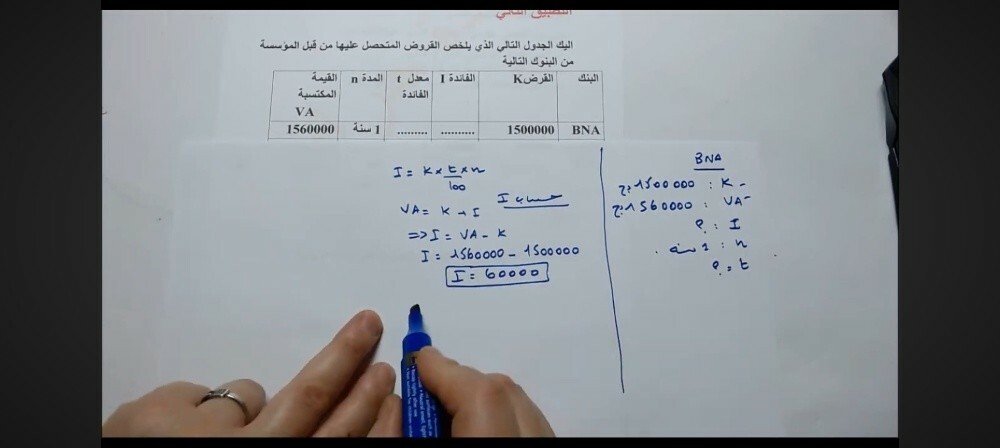 التطبيق الثاني
اليك الجدول التالي الذي يلخص القروض المتحصل عليها من قبل المؤسسة
من البنوك التالية
البنك القرض K الفائدة I معدل t الفائدة المدة n القيمة المكتسبة VA
BNA 1500000 .......... ......... 1 سنة 1560000
BNA
- K : 1500000 دج
- VA : 1560000 دج
I : ؟
n : 1 سنة
t : ؟
I = K × t × n
100
حساب I
VA = K + I
=> I = VA - K
I = 1560000 - 1500000
I = 60000